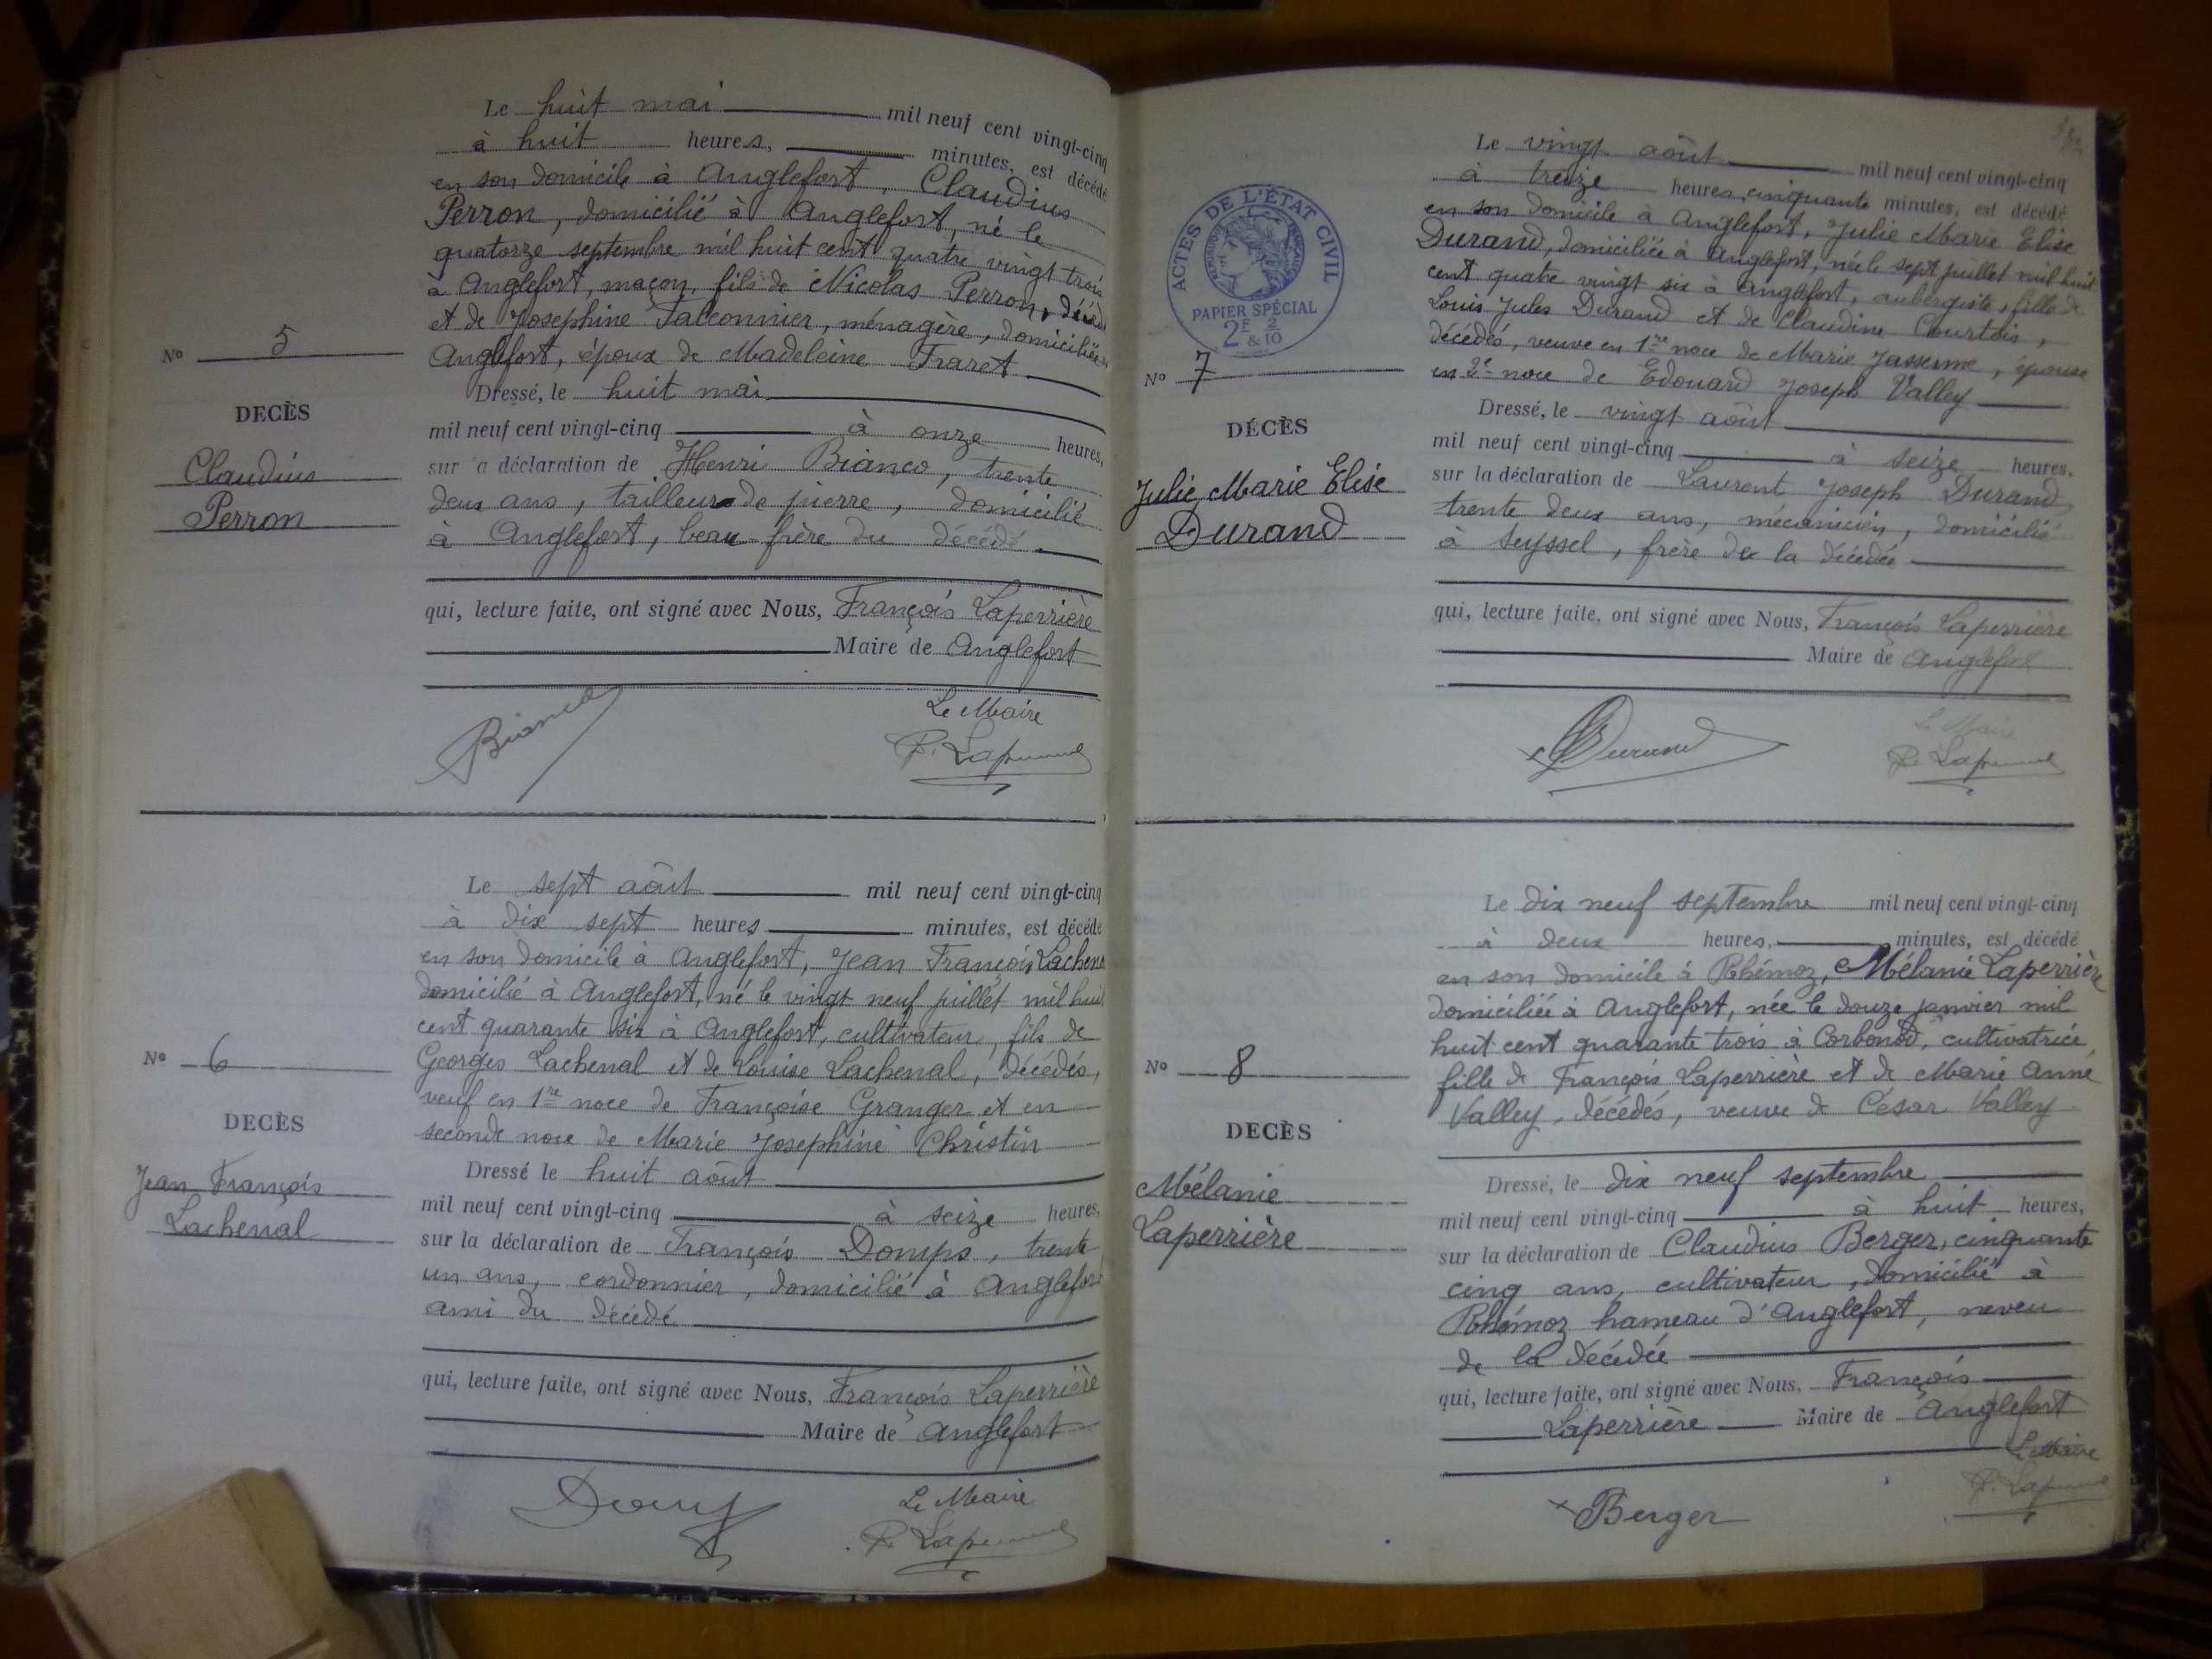 Le huit mai mil neuf cent vingt-cinq
à huit heures, minutes, est décédé
en son domicile à Anglefort, Claudius
Perron, domicilié à Anglefort, né le
quatorze septembre mil huit cent quatre vingt trois
à Anglefort, maçon, fils de Nicolas Perron, décédé
et de Josephine Falconnier, ménagère, domiciliée
Anglefort, époux de Madeleine Fraret
Dressé, le huit mai
mil neuf cent vingt-cinq à onze heures,
sur a déclaration de Henri Bianco, trente
deux ans, tailleur de pierre, domicilié
à Anglefort, beau-frère du décédé
qui, lecture faite, ont signé avec Nous, François Laperrière
Maire de Anglefort
Bianco
Le Maire
F. Laperrière
No 5
DECÈS
Claudius
Perron
Le sept août mil neuf cent vingt-cinq
à dix sept heures minutes, est décédé
en son domicile à Anglefort, Jean François Lachenal
domicilié à Anglefort, né le vingt neuf juillet mil huit
cent quarante six à Anglefort, cultivateur, fils de
Georges Lachenal et de Louise Lachenal, décédés,
veuf en 1re noce de Françoise Granger et en
seconde noce de Marie Josephine Christin
Dressé le huit août
mil neuf cent vingt-cinq à seize heures,
sur la déclaration de François Domps, trente
un ans, cordonnier, domicilié à Anglefort
ami du décédé
qui, lecture faite, ont signé avec Nous, François Laperrière
Maire de Anglefort
Le Maire
F. Laperrière
No 6
DECÈS
Jean François
Lachenal
Le vingt août mil neuf cent vingt-cinq
à treize heures, cinquante minutes, est décédé
en son domicile à Anglefort, Julie Marie Elise
Durand, domiciliée à Anglefort, née le sept juillet mil huit
cent quatre vingt six à Anglefort, aubergiste, fille de
Louis Jules Durand et de Claudine Courtois,
décédés, veuve en 1re noce de Marie Jasserme, épouse
en 2e noce de Edouard Joseph Valley
Dressé, le vingt août
mil neuf cent vingt-cinq à seize heures,
sur la déclaration de Laurent Joseph Durand,
trente deux ans, mécanicien, domicilié
à Seyssel, frère de la décédée
qui, lecture faite, ont signé avec Nous, François Laperrière
Maire de Anglefort
Durand
Le Maire
F. Laperrière
ACTES DE L'ÉTAT CIVIL
RÉPUBLIQUE FRANÇAISE
PAPIER SPÉCIAL
2F & 2/10
No 7
DÉCÈS
Julie Marie Elise
Durand
Le dix neuf septembre mil neuf cent vingt-cinq
à deux heures, minutes, est décédé
en son domicile à Rhémoz, Mélanie Laperrière
domiciliée à Anglefort, née le douze janvier mil
huit cent quarante trois à Corbonod, cultivatrice,
fille de François Laperrière et de Marie Anne
Valley, décédés, veuve de César Valley
Dressé, le dix neuf septembre
mil neuf cent vingt-cinq à huit heures,
sur la déclaration de Claudius Berger, cinquante
cinq ans, cultivateur, domicilié à
Rhémoz hameau d'Anglefort, neveu
de la décédée
qui, lecture faite, ont signé avec Nous, François
Laperrière Maire de Anglefort
Le Maire
F. Laperrière
Berger
No 8
DECÈS
Mélanie
Laperrière